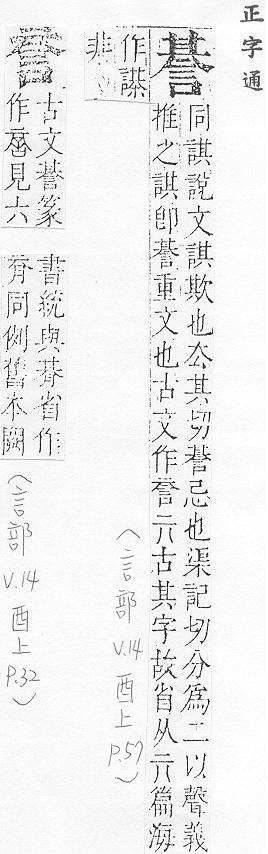 正字通
諅
同諆說文諆欺也去其切諅忌也渠記切分為二以聲義
推之諆卽諅重文也古文作𧧑丌古其字故省从丌篇海
作諜
非
古文諅篆
作
見六
書統與朞省作
有同例舊本闕
(言部 V.14 酉上 P.57)
(言部 V.14 酉上 P.32)